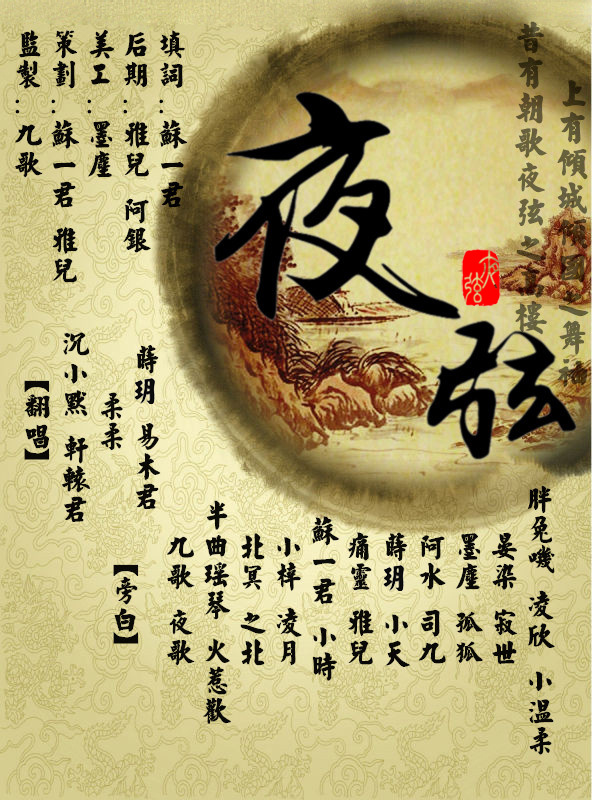 上有傾城傾國之舞袖
昔有朝歌夜弦之高樓
夜弦
夜弦
填詞：蘇一君
后期：雅兒 阿銀
美工：墨塵
策劃：蘇一君 雅兒
監製：九歌
蒔玥 易木君
柔柔
沉小黙 軒轅君
【翻唱】
胖兔嘰 凌欣 小溫柔
晏染 寂世
墨塵 孤狐
阿水 司九
蒔玥 小天
痛靈 雅兒
蘇一君 小時
小梓 凌月
北冥 之北
半曲瑶琴 火惹歡
九歌 夜歌
【旁白】